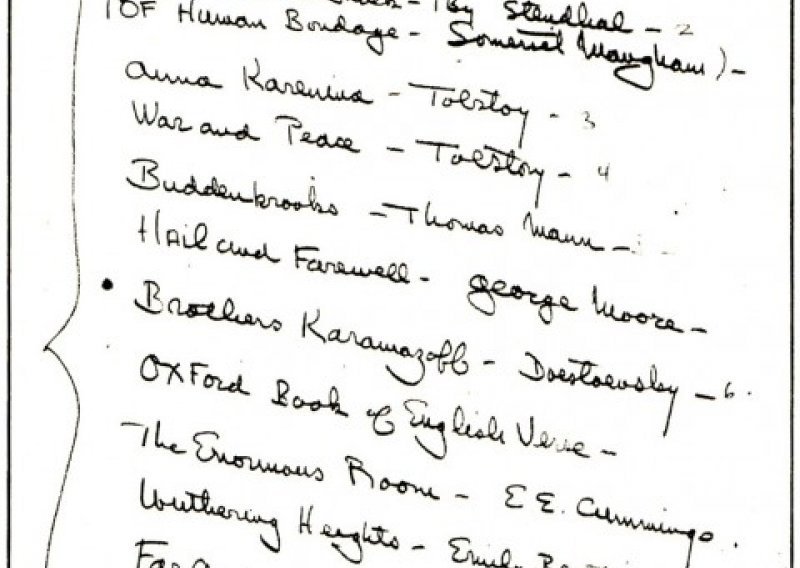 by Stendhal - 2
OF Human Bondage - Somerset Maugham) -
Anna Karenina - Tolstoy - 3
War and Peace - Tolstoy - 4
Buddenbrooks - Thomas Mann -
Hail and Farewell - George Moore -
• Brothers Karamazoff - Doestoevsky - 6.
Oxford Book of English Verse -
The Enormous Room - E.E. Cummings.
Wuthering Heights - Emily
Far